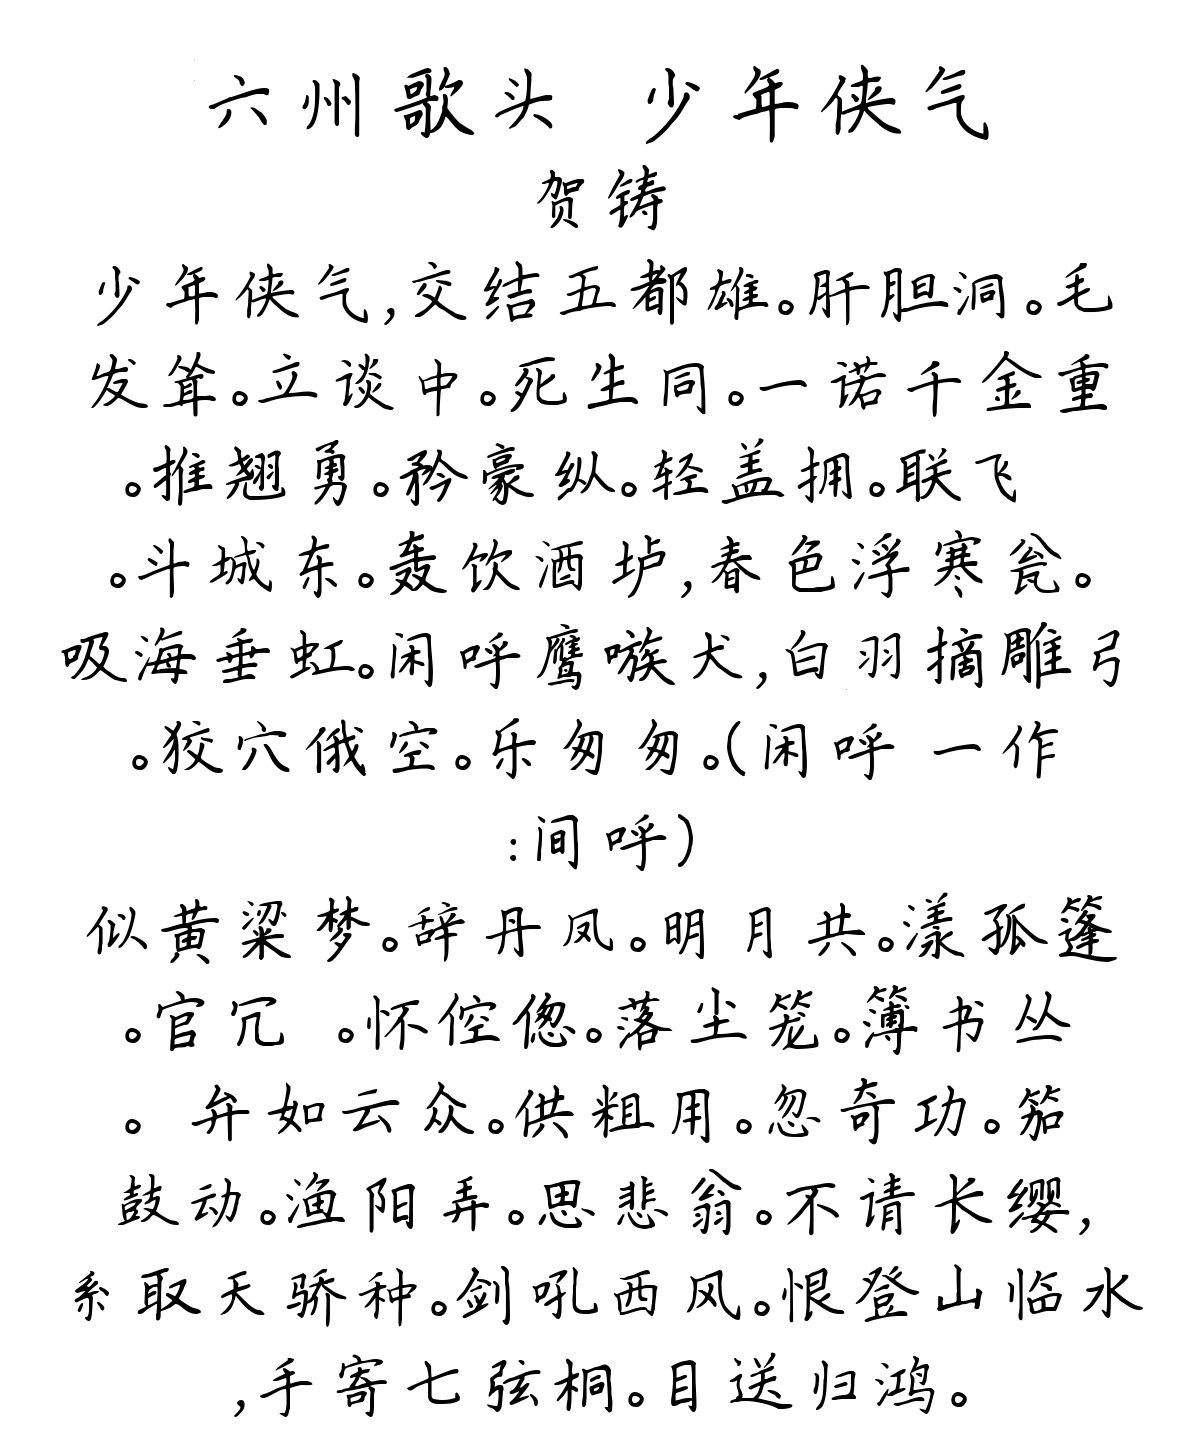 六州歌头 少年侠气
贺铸
少年侠气,交结五都雄。肝胆洞。毛
发耸。立谈中。死生同。一诺千金重
。推翘勇。矜豪纵。轻盖拥。联飞
。斗城东。轰饮酒垆,春色浮寒瓮。
吸海垂虹。闲呼鹰嗾犬,白羽摘雕弓
。狡穴俄空。乐匆匆。(闲呼 一作
:间呼)
似黄粱梦。辞丹凤。明月共。漾孤篷
。官冗 。怀倥偬。落尘笼。簿书丛
。 弁如云众。供粗用。忽奇功。笳
鼓动。渔阳弄。思悲翁。不请长缨,
系取天骄种。剑吼西风。恨登山临水
,手寄七弦桐。目送归鸿。